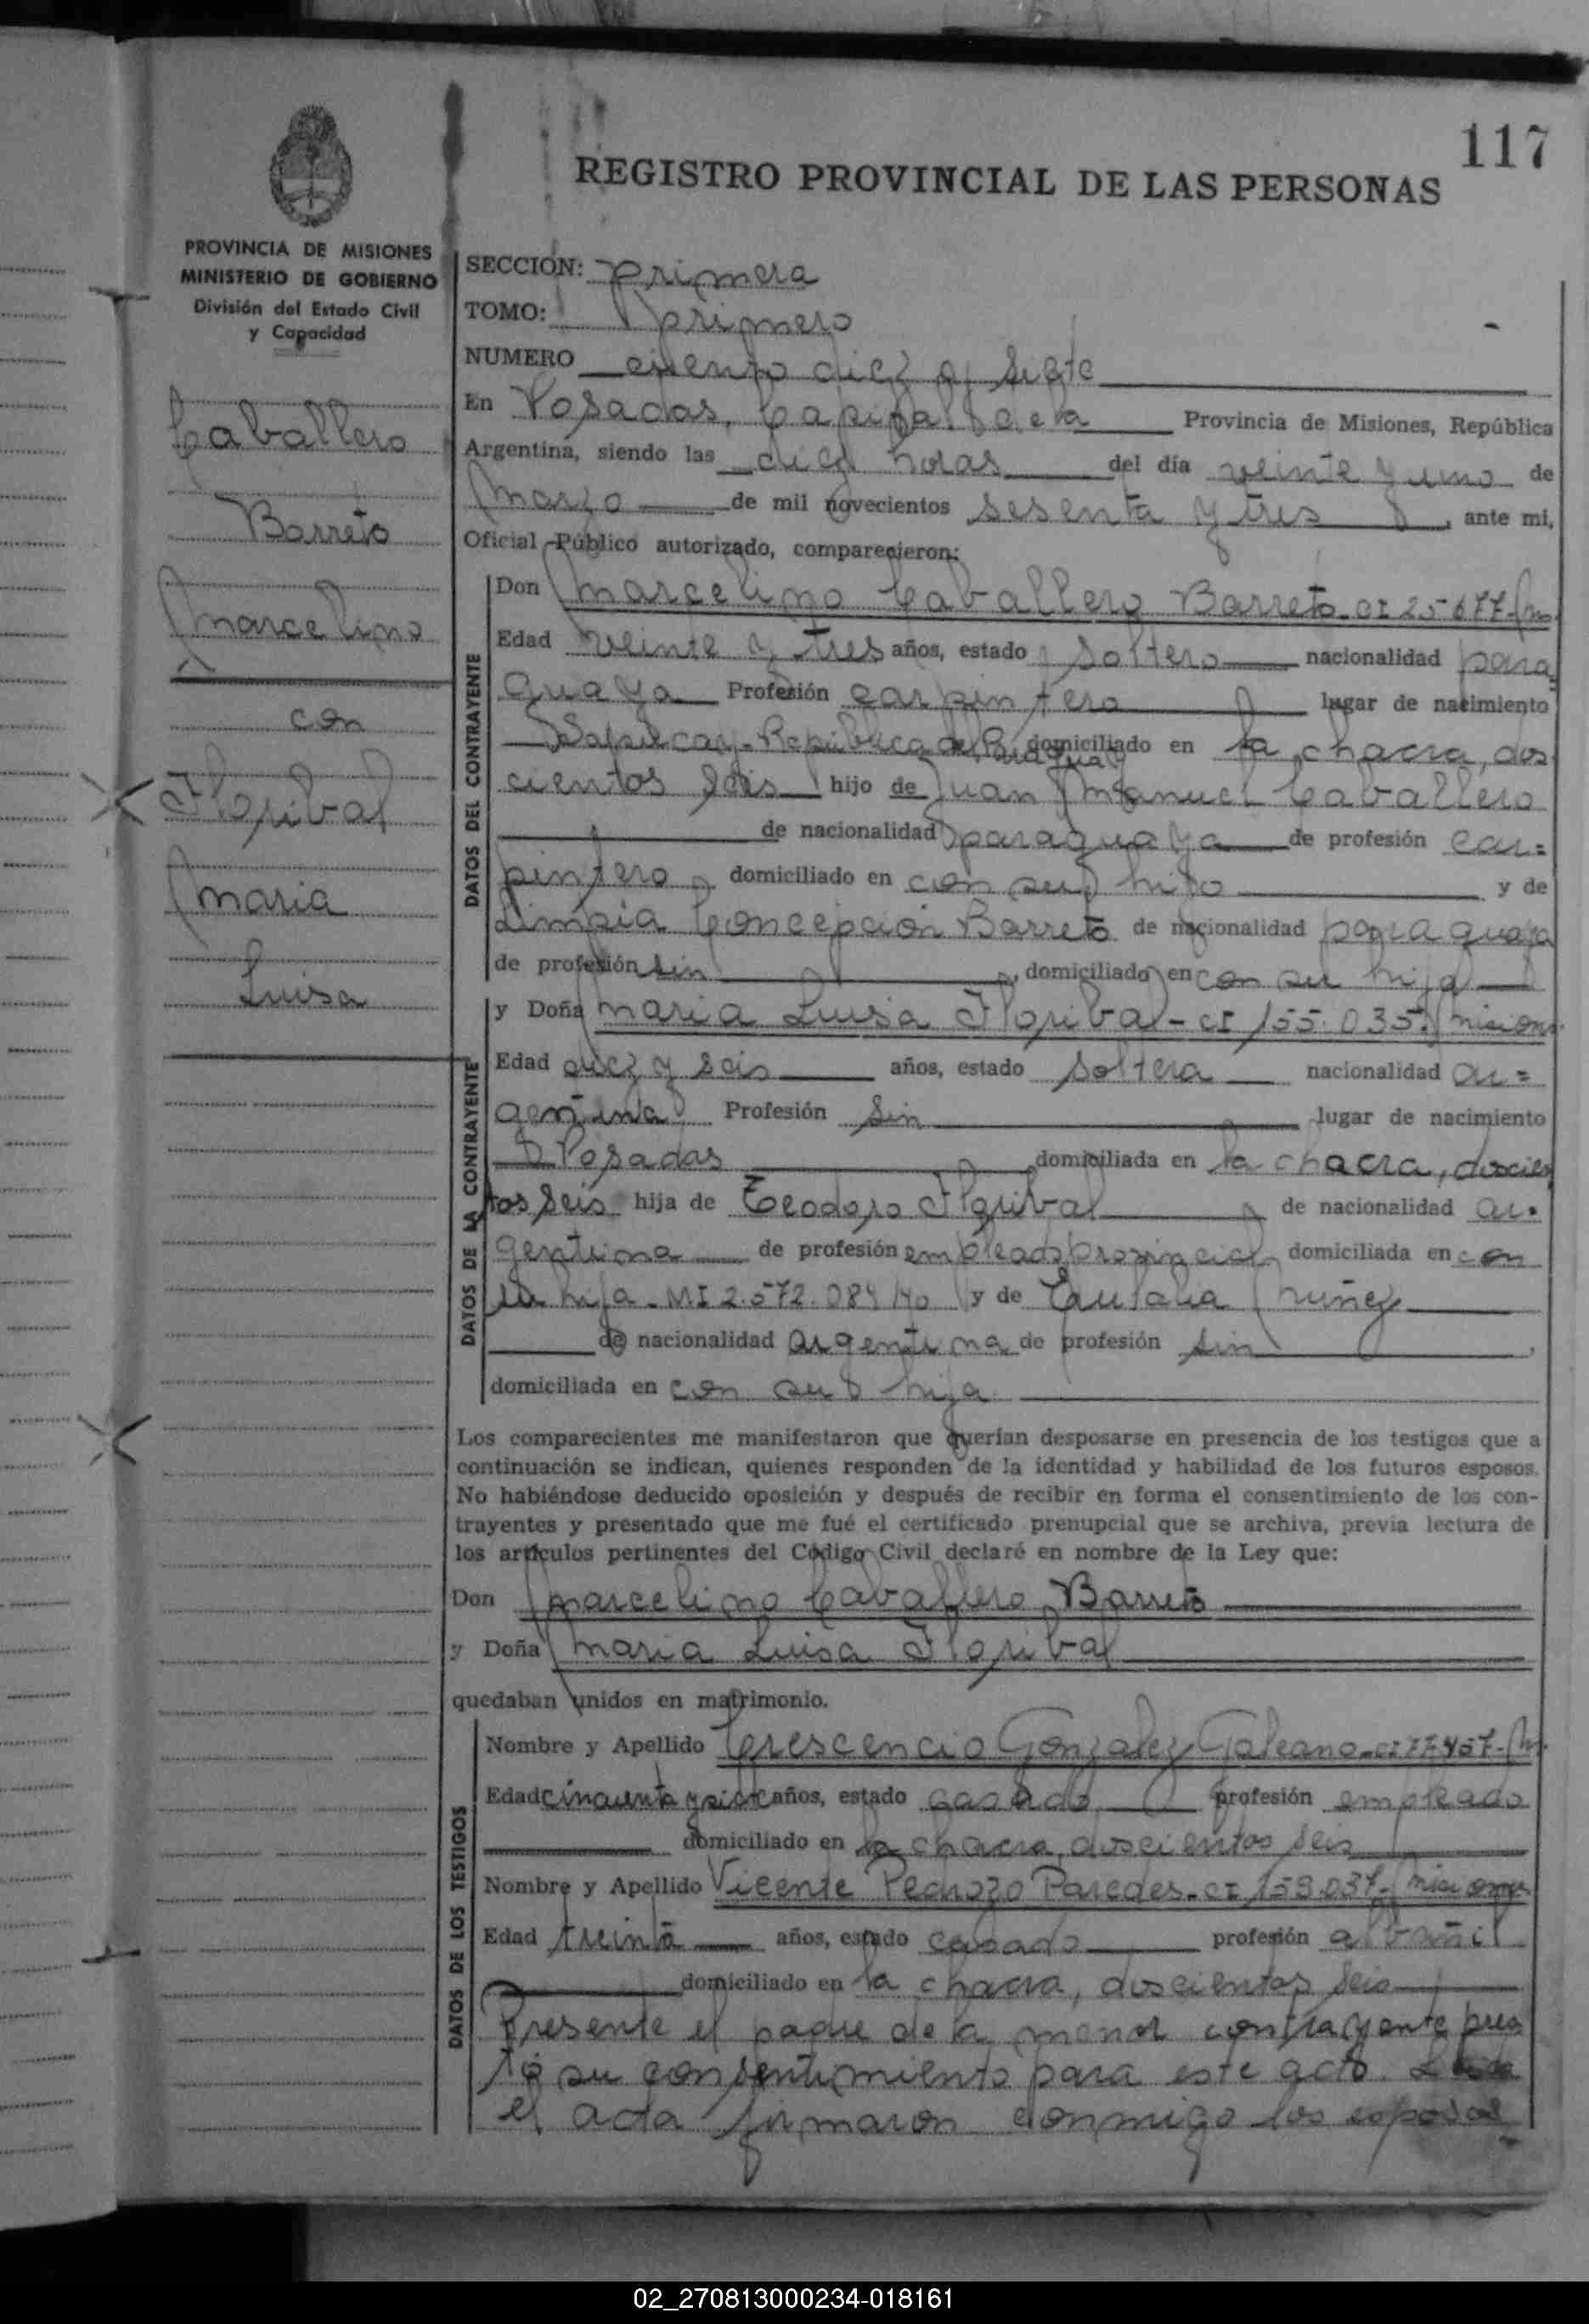 117
REGISTRO PROVINCIAL DE LAS PERSONAS
PROVINCIA DE MISIONES
MINISTERIO DE GOBIERNO
División del Estado Civil
y Capacidad
Caballero
Barreto
Marcelino
con
Floribal
Maria
Luisa
SECCIÓN: primera
TOMO: primero
NUMERO ciento diez y siete
En Posadas, Capital de la Provincia de Misiones, República
Argentina, siendo las diez horas del día veinte y uno de
Marzo de mil novecientos sesenta y tres, ante mi,
Oficial Público autorizado, comparecieron:
DATOS DEL CONTRAYENTE
Don Marcelino Caballero Barreto - CI 25677-Mn.
Edad veinte y tres años, estado soltero nacionalidad para=
guaya Profesión carpintero lugar de nacimiento
Sapucay - República del Paraguay domiciliado en la chacra, dos
cientos seis hijo de Juan Manuel Caballero
de nacionalidad paraguaya de profesión car=
pintero, domiciliado en con su hijo y de
Limpia Concepción Barreto de nacionalidad paraguaya
de profesión sin, domiciliado en con su hija
DATOS DE LA CONTRAYENTE
y Doña Maria Luisa Floribal - CI 155.035. Misiones
Edad diez y seis años, estado soltera nacionalidad ar=
gentina Profesión sin lugar de nacimiento
Posadas domiciliada en la chacra, doscien
tos seis hija de Teodoro Floribal de nacionalidad ar=
gentina de profesión empleado provincial domiciliada en con
su hija - MI 2.572.084 y de Eulalia Nuñez
de nacionalidad argentina de profesión sin,
domiciliada en con su hija
Los comparecientes me manifestaron que querían desposarse en presencia de los testigos que a
continuación se indican, quienes responden de la identidad y habilidad de los futuros esposos.
No habiéndose deducido oposición y después de recibir en forma el consentimiento de los con-
trayentes y presentado que me fué el certificado prenupcial que se archiva, previa lectura de
los artículos pertinentes del Código Civil declaré en nombre de la Ley que:
Don Marcelino Caballero Barreto
y Doña Maria Luisa Floribal
quedaban unidos en matrimonio.
DATOS DE LOS TESTIGOS
Nombre y Apellido Crescencio Gonzalez Galeano - CI 77457-Mn.
Edad cincuenta y siete años, estado casado profesión empleado
domiciliado en la chacra, doscientos seis
Nombre y Apellido Vicente Pedrozo Paredes - CI 159.037- Misiones
Edad treinta años, estado casado profesión albañil
domiciliado en la chacra, doscientos seis
Presente el padre de la menor contrayente pres
tó su consentimiento para este acto. Leida
el acta firmaron conmigo los esposos
02_270813000234-018161